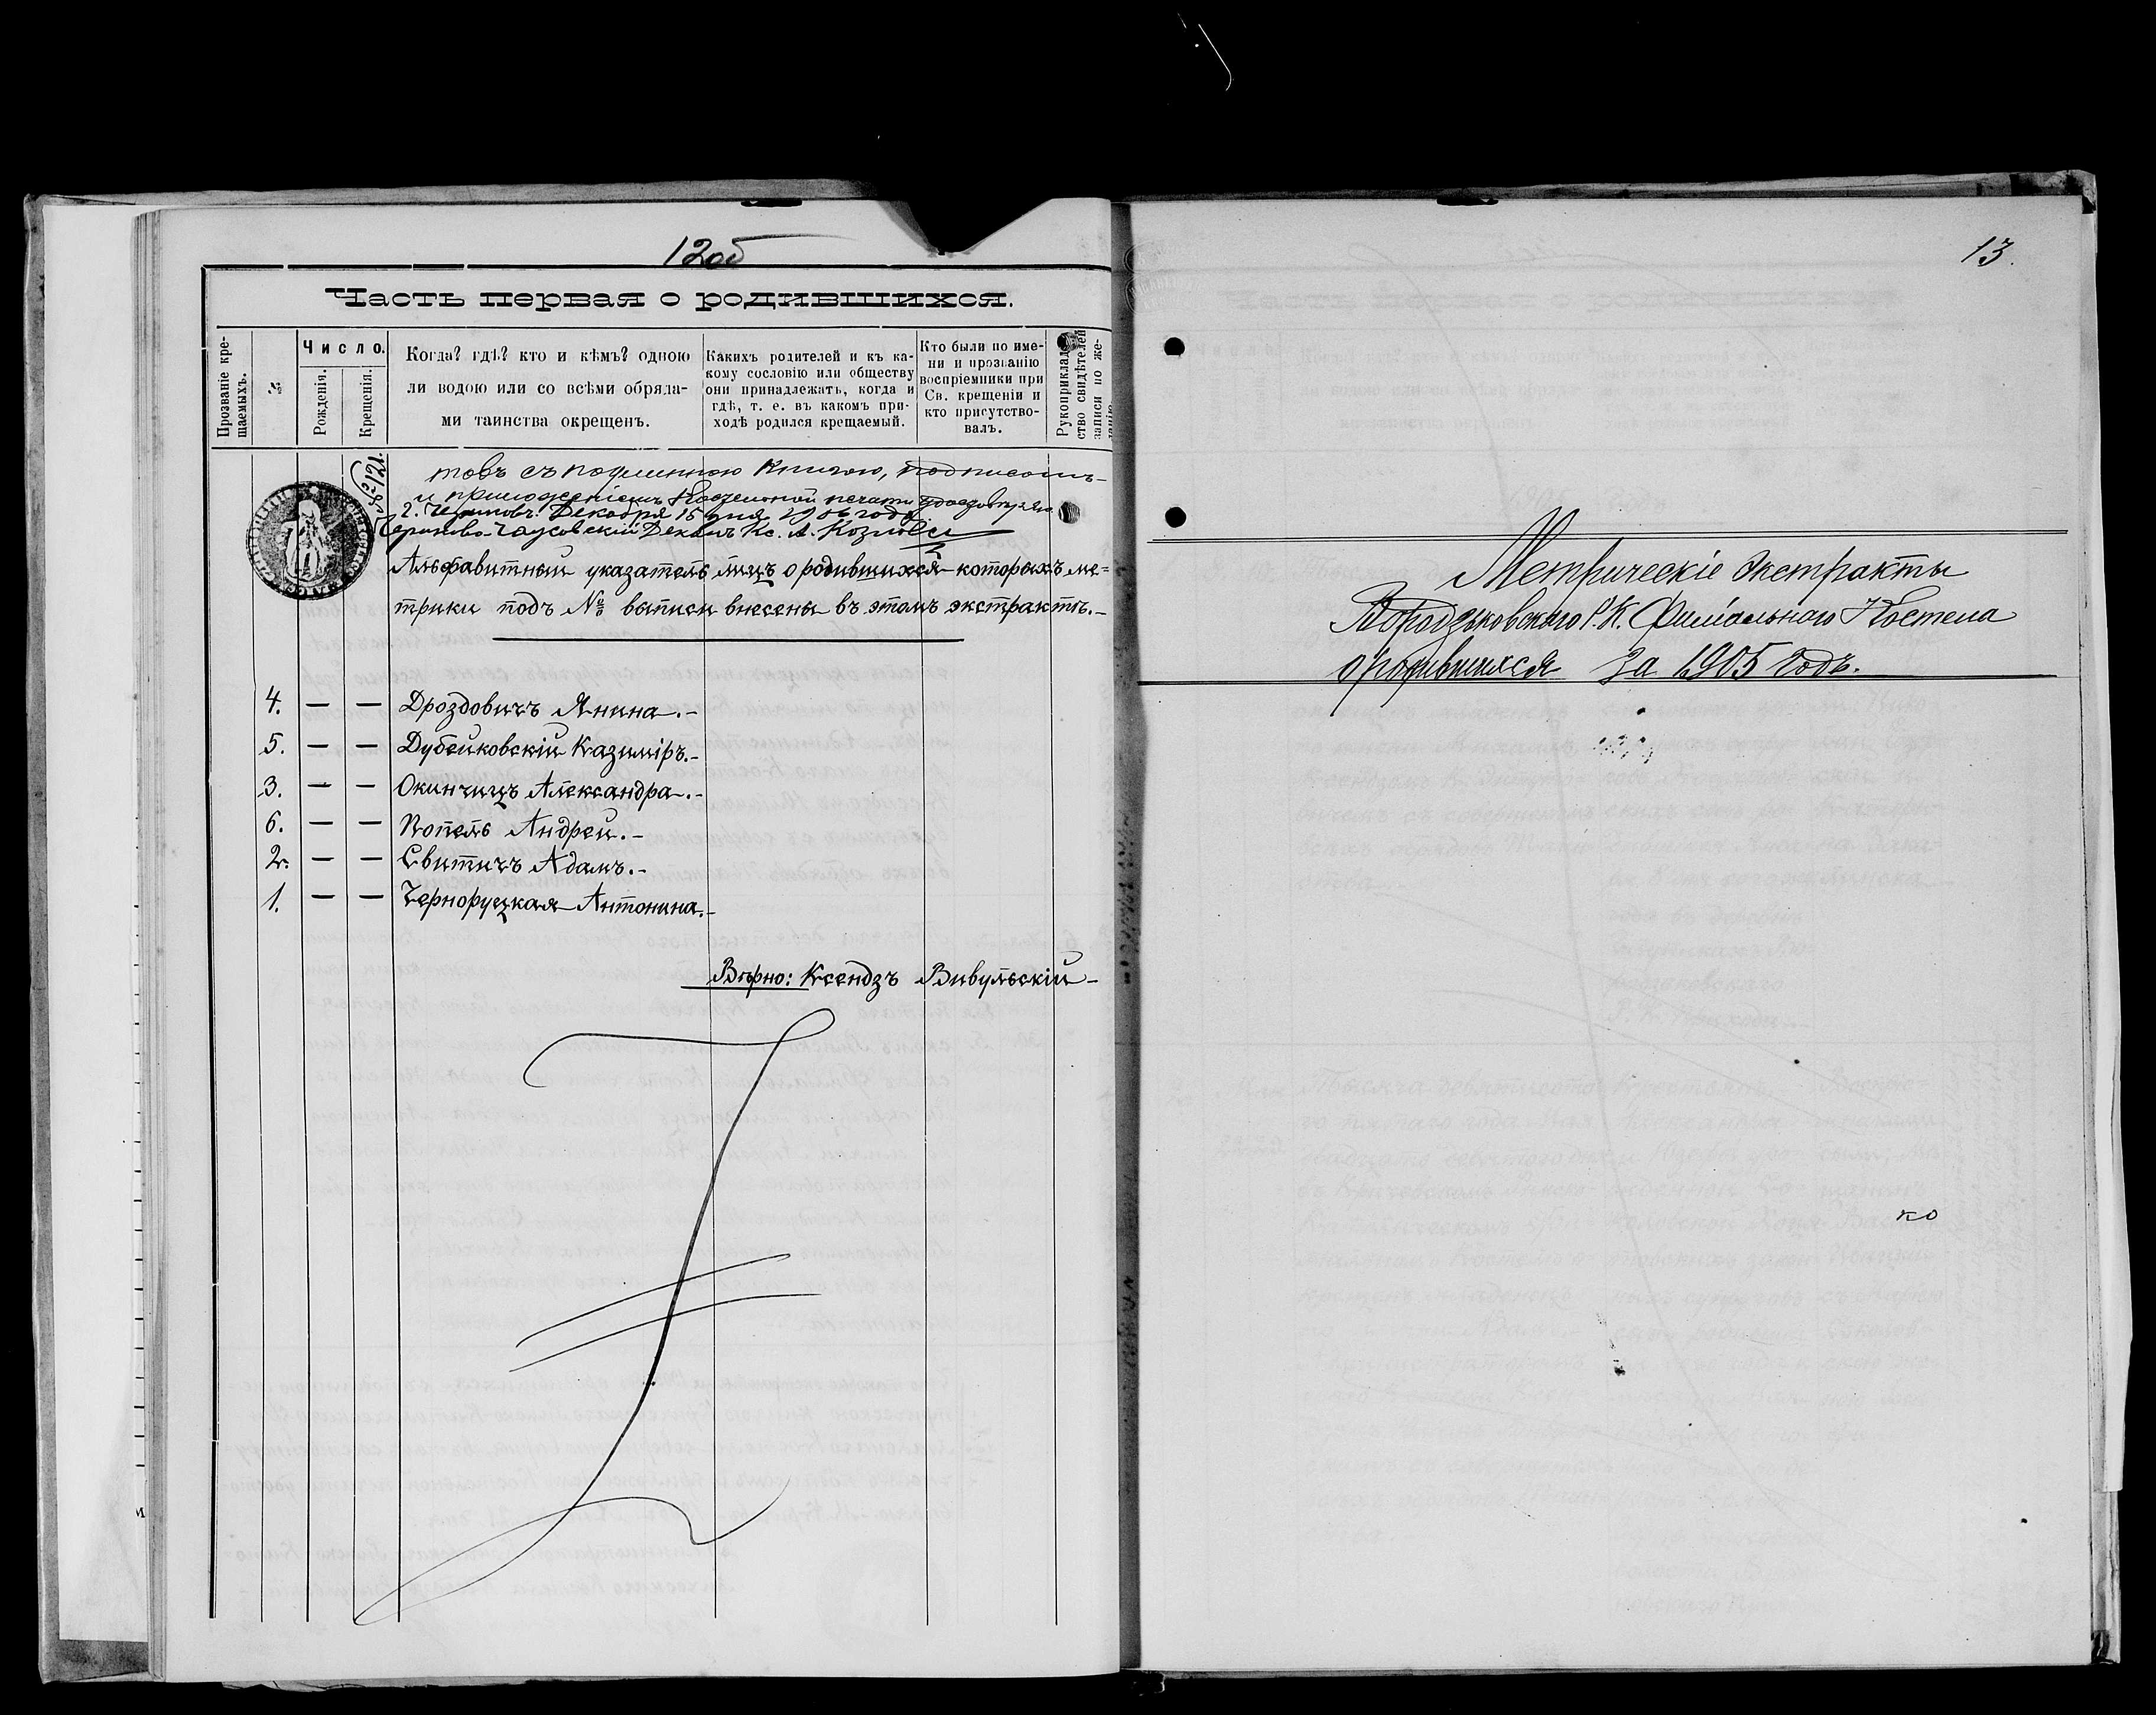 12об
Часть первая о родившихся.
Прозваніе кре-
щаемыхъ.
№
Число.
Рожденія.
Крещенія.
Когда? гдѣ? кто и кѣмъ? одною
ли водою или со всѣми обряда-
ми таинства окрещенъ.
Какихъ родителей и къ ка-
кому сословію или обществу
они принадлежатъ, когда и
гдѣ, т. е. въ какомъ при-
ходѣ родился крещаемый.
Кто были по име-
ни и прозванію
воспріемники при
Св. крещеніи и
кто присутство-
валъ.
Рукоприкладс
ство свидѣтелей
записи по же-
ланію.
товъ съ подлинною книгою, подписомъ
и приложеніемъ Костельной печати удостовѣряю
г. Чериковъ. Декабря 15 дня 1906 года
Чериково-Чаусовскій Деканъ Кс. А.
Альфавитный указатель лицъ о родившихся которыхъ ме=
трики подъ № выписи внесены въ этомъ экстрактѣ.-
4. — — Дроздовичъ Янина.-
5. — — Дубейковскій Казиміръ.-
3. — — Окинчицъ Александра.-
6. — — Попель Андрей.-
2. — — Свитичъ Адамъ.-
1. — — Чернорущкая Антонина.-
Вѣрно: Ксендзъ Вивульскій-
13.
Метрическіе Экстракты
Р.К. Филіального Костела
о родившихся за 1905 годъ.